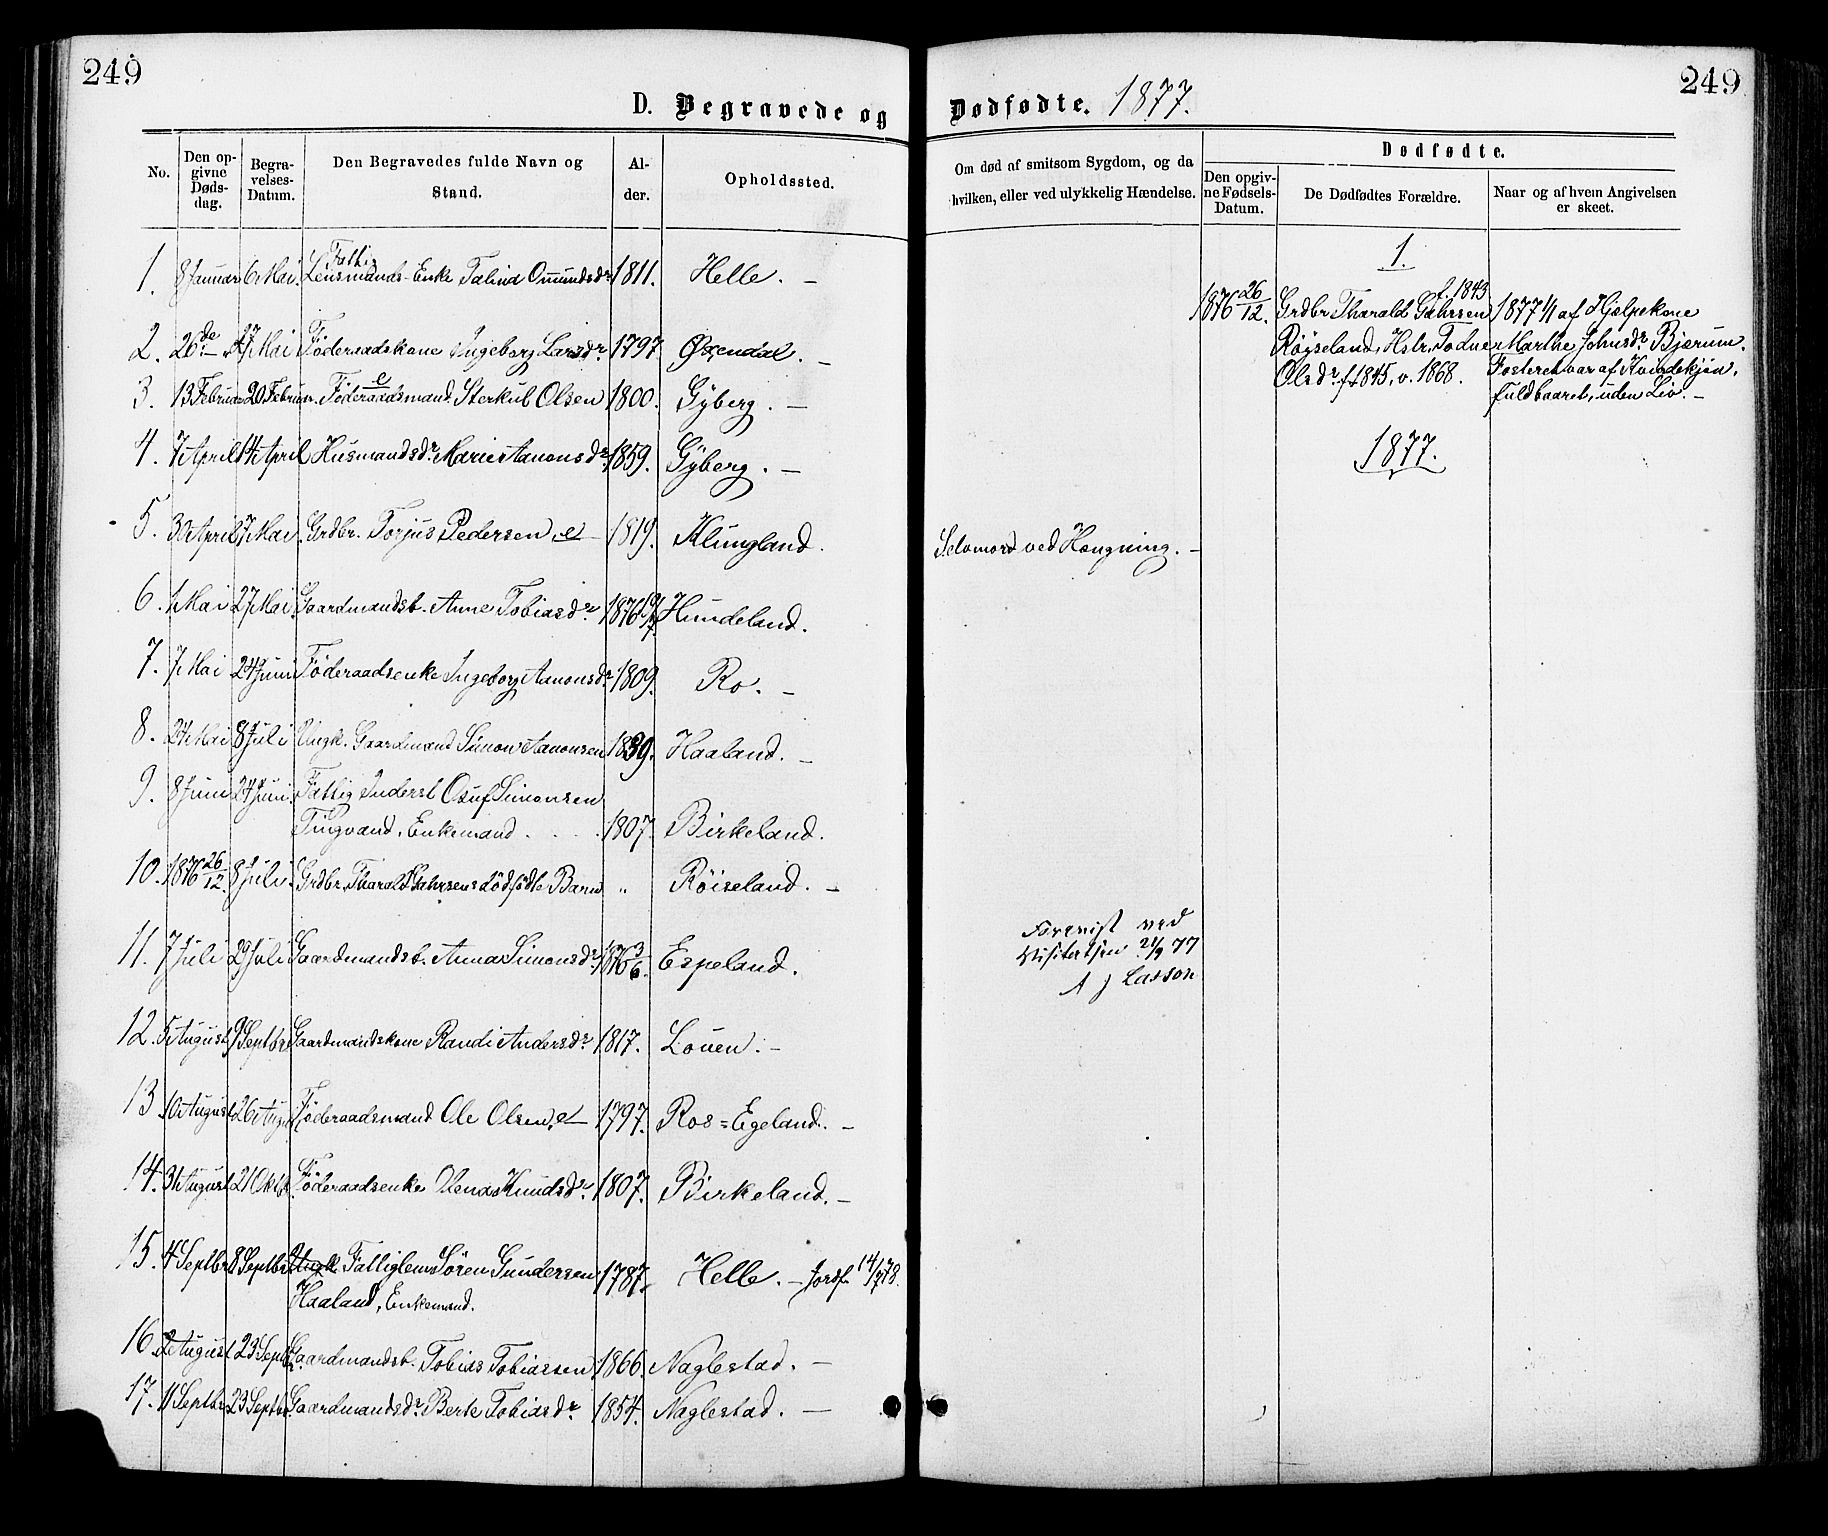 249
249
D. Begravede og Dødfødte. 1877.
No.
Den opgivne Dødsdag.
Begravelses-Datum.
Den Begravedes fulde Navn og Stand.
Alder.
Opholdssted.
Om død af smitsom Sygdom, og da hvilken, eller ved ulykkelig Hændelse.
Dødfødte.
Den opgivne Fødsels-Datum.
De Dødfødtes Forældre.
Naar og af hvem Angivelsen er skeet.
Fattig
1. 8 Januar 6 Mai. Lensmands-Enke Talina Omundsdr 1811. Helle. —
2. 26 de 27 Mai Føderaadskone Ingeborg Larsdr 1797. Øxendal. —
3. 13 Februar 20 Februar. Føderaadsmand Sterkul Olsen 1800. Gyberg. —
4. 7 April 14 April Husmandsdr Marie Aanonsdr 1859. Gyberg. —
5. 30 April 7 Mai. Grdbr. Torjus Pedersen, e 1819. Klungland. Selvmord ved Hængning. —
6. 1 Mai 27 Mai Gaardmandsb. Anne Tobiasdr 1876 Hundeland.
7. 7 Mai 24 Juni Føderaadsenke Ingeborg Aanonsdr 1809. Ro. —
8. 24 Mai 8 Juli Ungk. Gaardmand Simon Aanonsen 1839. Haaland. —
9. 8 Juni 24 Juni. Fattig Inderst Osuf Simonsen
Tingvand, Enkemand. . . . 1807. Birkeland.
10. 1876 26/12. 8 Juli. Grdbr. Tharald Gahrsens dødfødte Barn „ Røiseland. —
11. 7 Juli 29 Juli Gaardmandsb. Anna Simonsdr 1876 3/6. Espeland.
12. 5 August 9 Septbr Gaardmandskone Randi Andersdr 1817. Louen. —
13. 10 August 26 Aug. Føderaadsmand Ole Olsen, e 1797. Ros=Egeland. —
14. 31 August 21 Oktb. Føderaadsenke Olena Knudsdr 1807. Birkeland. —
15. 4 Septbr 8 Septbr Ungk. Fattiglem Søren Gundersen 1787. Helle. — Jordf. 14/7 78.
Haaland, Enkemand.
16. 2 August 23 Septbr. Gaardmandsb. Tobias Tobiassen 1866. Naglestad. —
17. 11 Septbr 23 Septbr. Gaardmandsdr Berte Tobiasdr 1854. Naglestad. —
1.
f. 1843
1876 26/12. Grdbr Tharald Gahrsen 1877 1/1 af Hjælpekone
Røiseland, Hstr. Todne Marthe Johnsdr Bjærum.
Olsdr. f. 1845, v. 1868. Fosteret var af Kvindekjøn,
fuldbaaret, uden Liv. —
1877.
Forevist ved
Visitatsen 21/9 77
A J Lasson